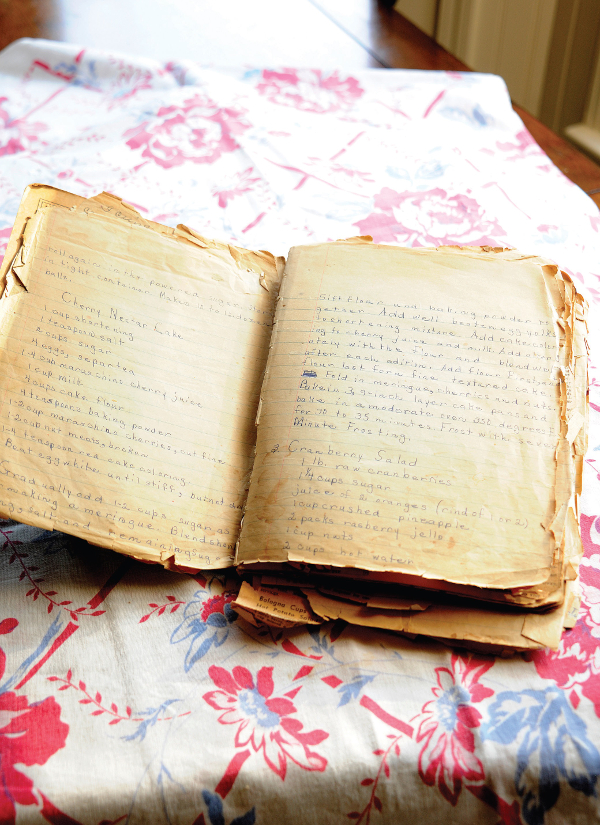 roll again in the powdered sugar
in tight container. Makes
balls.
Cherry Nectar Cake
1 cup shortening
1 teaspoon salt
2 cups sugar
4 eggs, separted
1/4 cup maraschino cherry juice
1 cup milk
4 cups cake flour
4 teaspoons baking powder
1-2 cup maraschino cherries, cut fine
1-2 cup nut meats, broken
1/4 teaspoon red cake coloring
Beat egg whites until stiff, but not dry
Gradually add 1-2 cups sugar,
making a meringue. Blend short
ing salt and remaining sugar
Sift flour and baking powder to
gether. Add well beaten egg yolks
to shortening mixture. Add
cherry juice and milk. Add
nately with the flour and blend well
after each adition. Add flour first and
flour last for a fine textured
Fold in meringue, cherries and nuts
Put in 3 grinch layer cake pans and
bake in a moderate oven 350 degrees
for 30 to 35 minutes. Frost with seven
Minute Frosting.
Cranberry Salad
1 lb. raw cranberries
1 1/4 cups sugar
juice of 2 oranges (rind of 1 or 2)
1 cup crushed pineapple
2 packs rasberry jello
1 cup nuts
2 cups hot water
Bologna Cups
Hot Potato